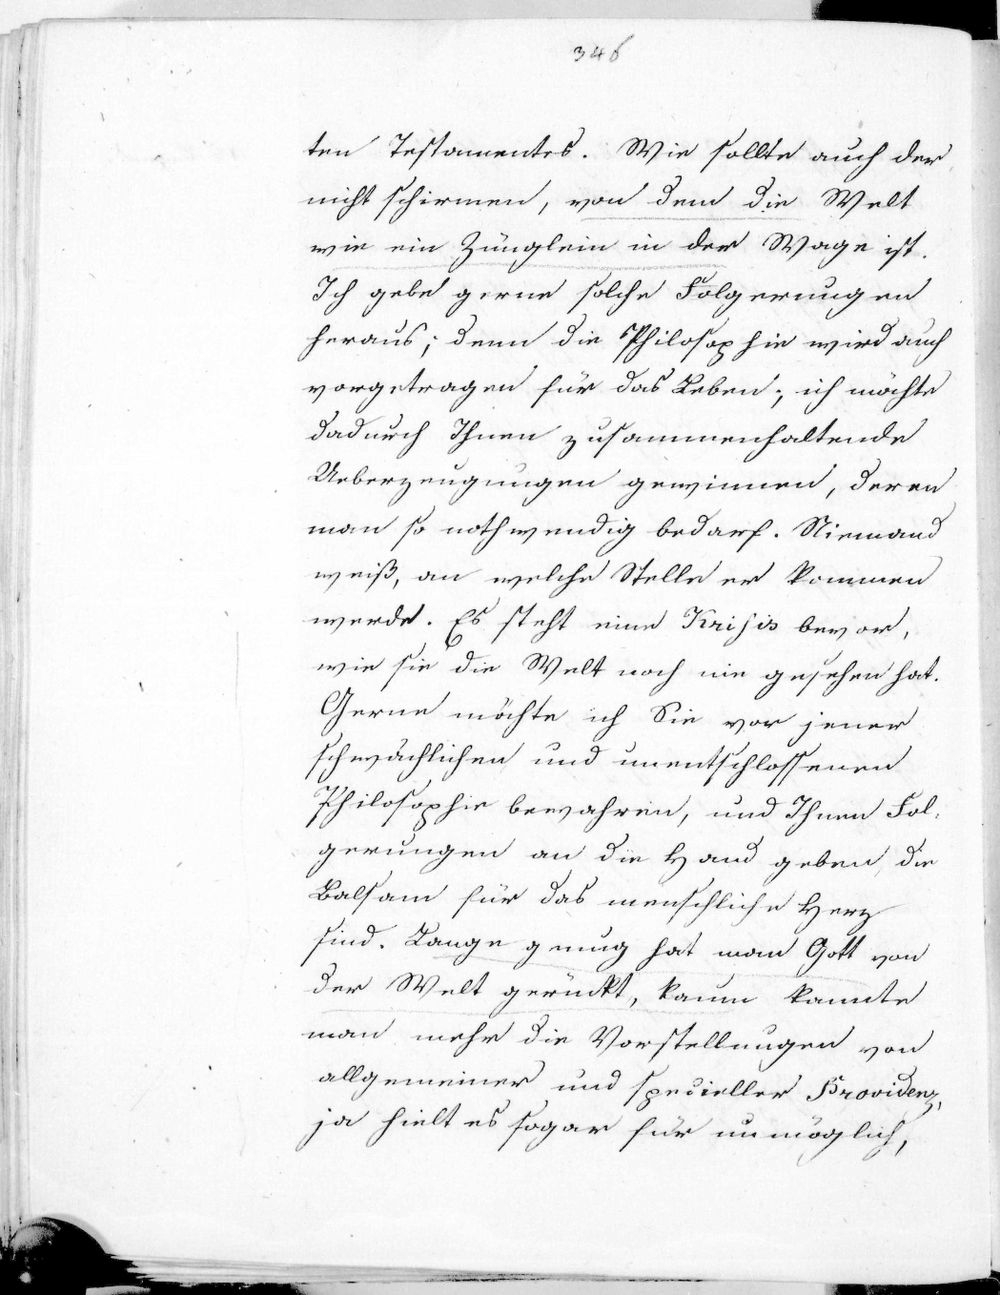 346
ten Testamentes. Wie sollte auch der
nicht schirmen, von dem die Welt
wie ein Zünglein in der Wage ist.
Ich gebe gerne solche Folgerungen
heraus; denn die Philosophie wird auch
vorgetragen für das Leben; ich möchte
dadurch Ihnen zusammenhaltende
Ueberzeugungen gewinnen, deren
man so nothwendig bedarf. Niemand
weiß, an welche Stelle er kommen
werde. Es steht eine Krisis bevor,
wie sie die Welt noch nie gesehen hat.
Gerne möchte ich Sie vor jener
schwächlichen und unentschlossenen
Philosophie bewahren, und Ihnen Fol-
gerungen an die Hand geben, die
Balsam für das menschliche Herz
sind. Lange genug hat man Gott von
der Welt gerückt, kaum kannte
man mehr die Vorstellungen von
allgemeiner und specieller Providenz,
ja hielt es sogar für unmöglich,